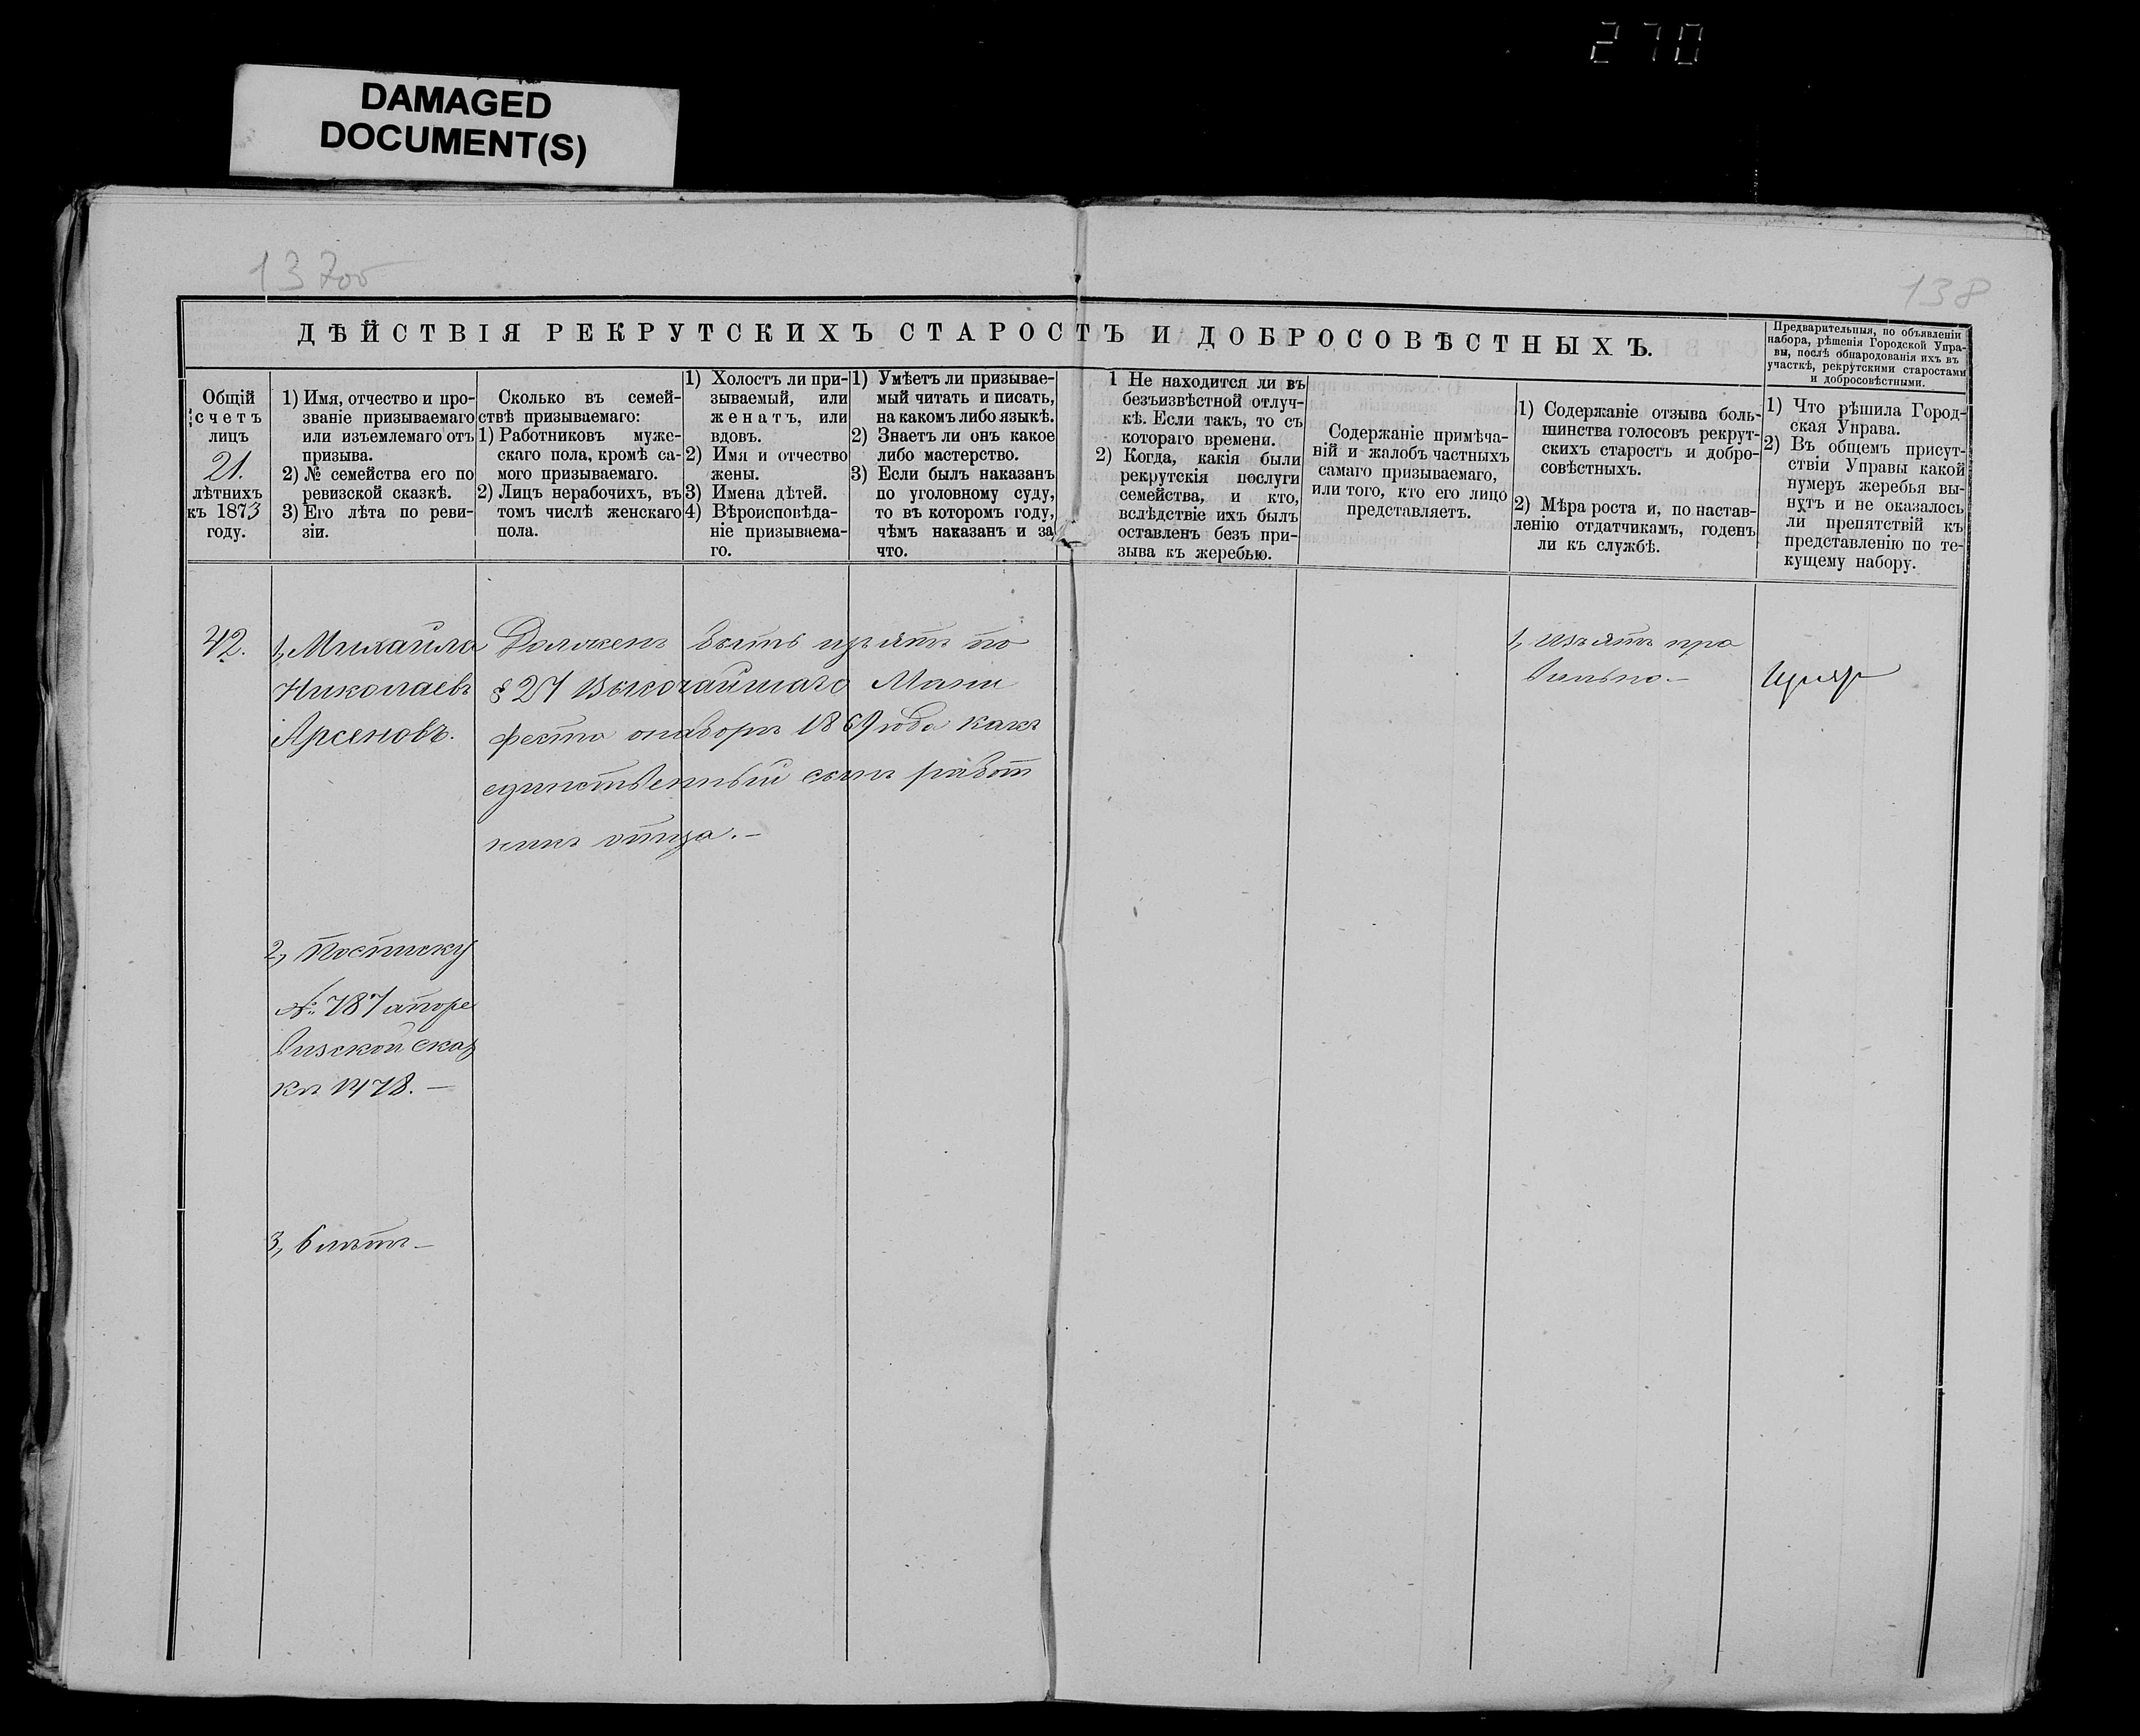 270
DAMAGED
DOCUMENT(S)
137об
138
ДѢЙСТВІЯ РЕКРУТСКИХЪ СТАРОСТЪ И ДОБРОСОВѢСТНЫХЪ.
Предварительныя, по объявленіи
набора, рѣшенія Городской Упра-
вы, послѣ обнародованія ихъ въ
участкѣ, рекрутскими старостами
и добросовѣстными.
Общій
счетъ
лицъ
21.
лѣтнихъ
къ 1873
году.
1) Имя, отчество и про-
званіе призываемаго
или изъемлемаго отъ
призыва.
2) № семейства его по
ревизской сказкѣ.
3) Его лѣта по реви-
зіи.
Сколько въ семей-
ствѣ призываемаго:
1) Работниковъ муже-
скаго пола, кромѣ са-
мого призываемаго.
2) Лицъ нерабочихъ, въ
томъ числѣ женскаго
пола.
1) Холостъ ли при-
зываемый, или
женатъ, или
вдовъ.
2) Имя и отчество
жены.
3) Имена дѣтей.
4) Вѣроисповѣда-
ніе призываема-
го.
1) Умѣетъ ли призывае-
мый читать и писать,
на какомъ либо языкѣ.
2) Знаетъ ли онъ какое
либо мастерство.
3) Если былъ наказанъ
по уголовному суду,
то въ которомъ году,
чѣмъ наказанъ и за
что.
1 Не находится ли въ
безъизвѣстной отлуч-
кѣ. Если такъ, то съ
котораго времени.
2) Когда, какія были
рекрутскія послуги
семейства, и кто,
вслѣдствіе ихъ былъ
оставленъ безъ при-
зыва къ жеребью.
Содержаніе примѣча-
ній и жалобъ частныхъ
самаго призываемаго,
или того, кто его лицо
представляетъ.
1) Содержаніе отзыва боль-
шинства голосовъ рекрут-
скихъ старостъ и добро-
совѣстныхъ.
2) Мѣра роста и, по настав-
ленію отдатчикамъ, годенъ
ли къ службѣ.
1) Что рѣшила Город-
ская Управа.
2) Въ общемъ присут-
ствіи Управы какой
нумеръ жеребья вы-
нутъ и не оказалось
ли препятствій къ
представленію по те-
кущему набору.
42.
1, Михайла
Николаевъ
Арсеновъ.
Долженъ быть изъятъ по
§ 27 Высочайшаго Мани
феста о наборѣ 1869 года какъ
единственный сынъ работ
никъ отца.–
2, По списку
№ 787 а по ре
визской сказ
кѣ 1478.–
3, 6 лѣтъ–
1, Изъятъ пра
вильно.–